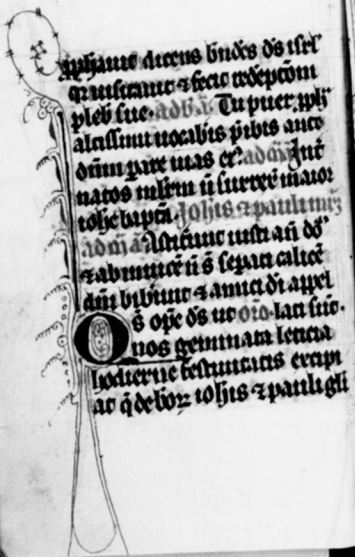 pphauit dicens bndcs ds isrl
q uisitauit ⁊ fecit redeptcom
pleb sue. ad b. Tu puer pph
altissimi uocabis pibis ante
dnm pare uias ei. ad Int
natos mlrm n surrex maior
iohe bapta. Johis ⁊ pauli
ad Astiterunt iusti an dom
⁊ abinuice n s separati calice
dni biberunt ⁊ amici di appel
s ope ds ut oro. lati sut.
Q nos geminata leticia
hodierne festiuitatis excipi
at q de bor iohis ⁊ pauli gli